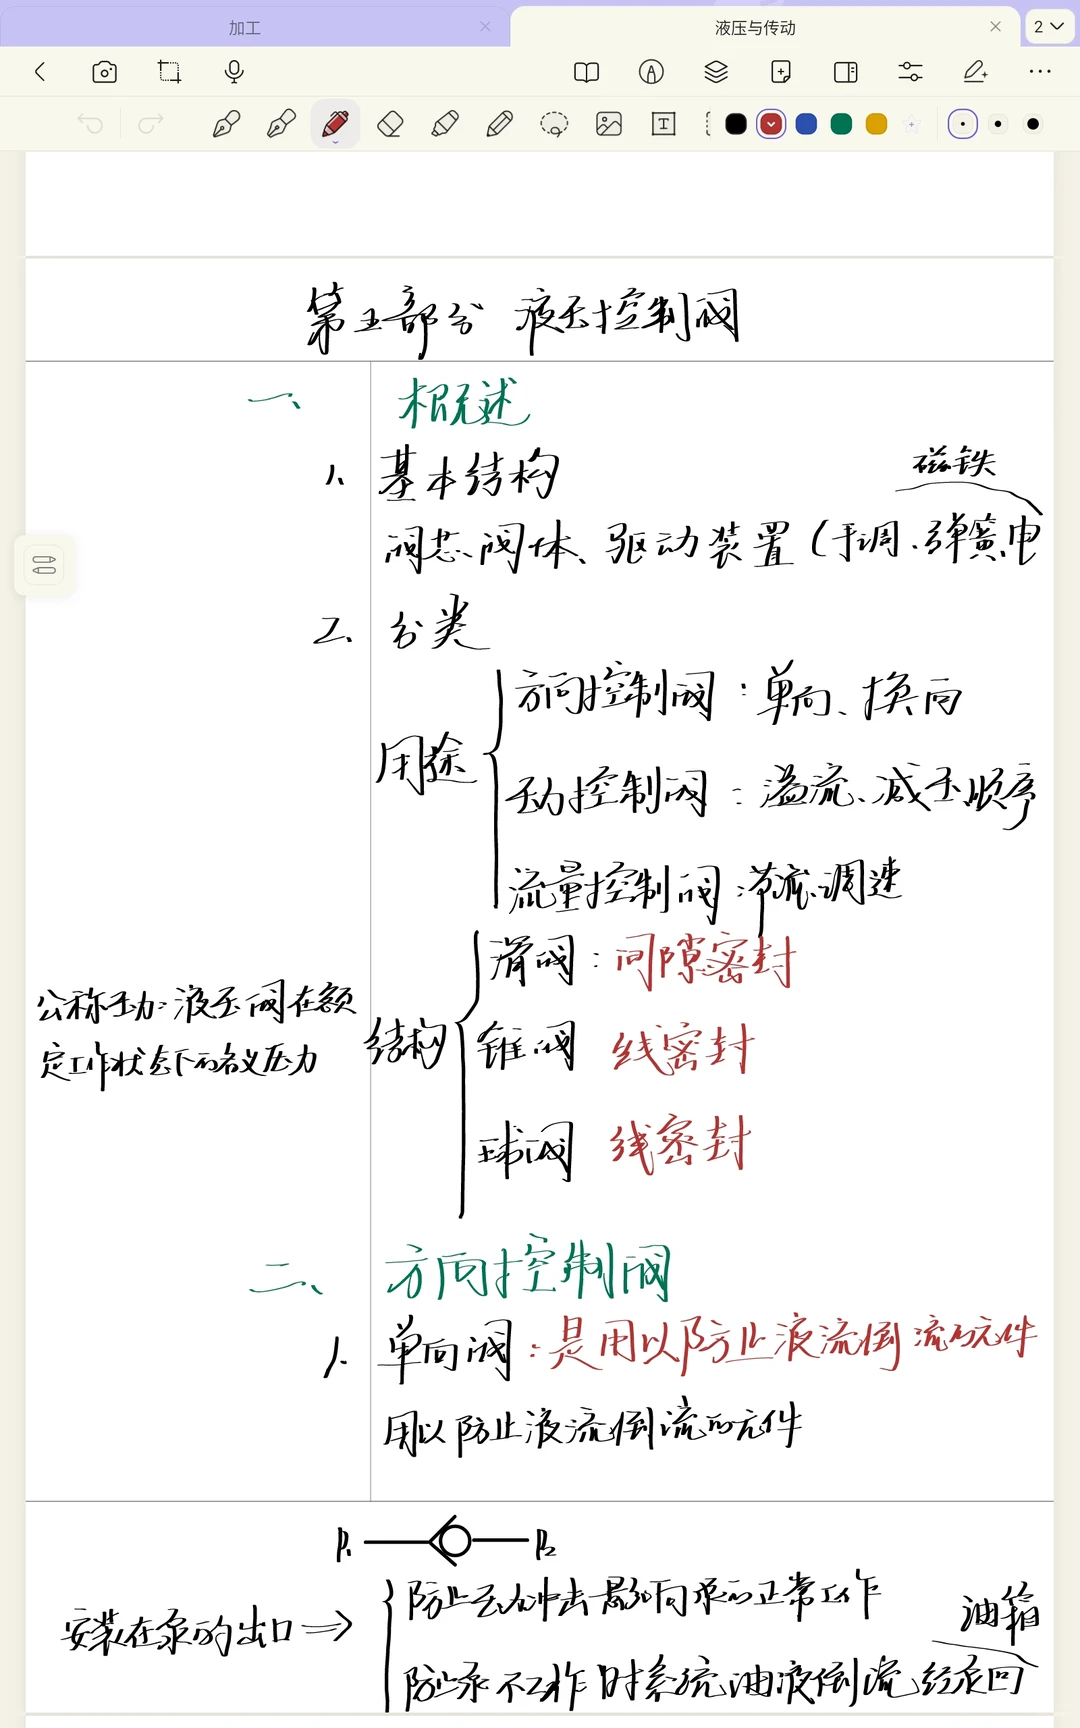 加工
液压与传动
2
第五部分 液压控制阀
一、 概述
1、基本结构
磁铁
阀芯、阀体、驱动装置(手调、弹簧、电
2、分类
用途
方向控制阀:单向、换向
压力控制阀:溢流、减压、顺序
流量控制阀:节流、调速
结构
滑阀:间隙密封
锥阀 线密封
球阀 线密封
公称压力:液压阀在额
定工作状态下的名义压力
二、 方向控制阀
1、单向阀:是用以防止液流倒流的元件
用以防止液流倒流的元件
P₁ P₂
安装在泵的出口⇒
防止压力冲击影响泵的正常工作
油箱
防止泵不工作时系统油液倒流经泵回